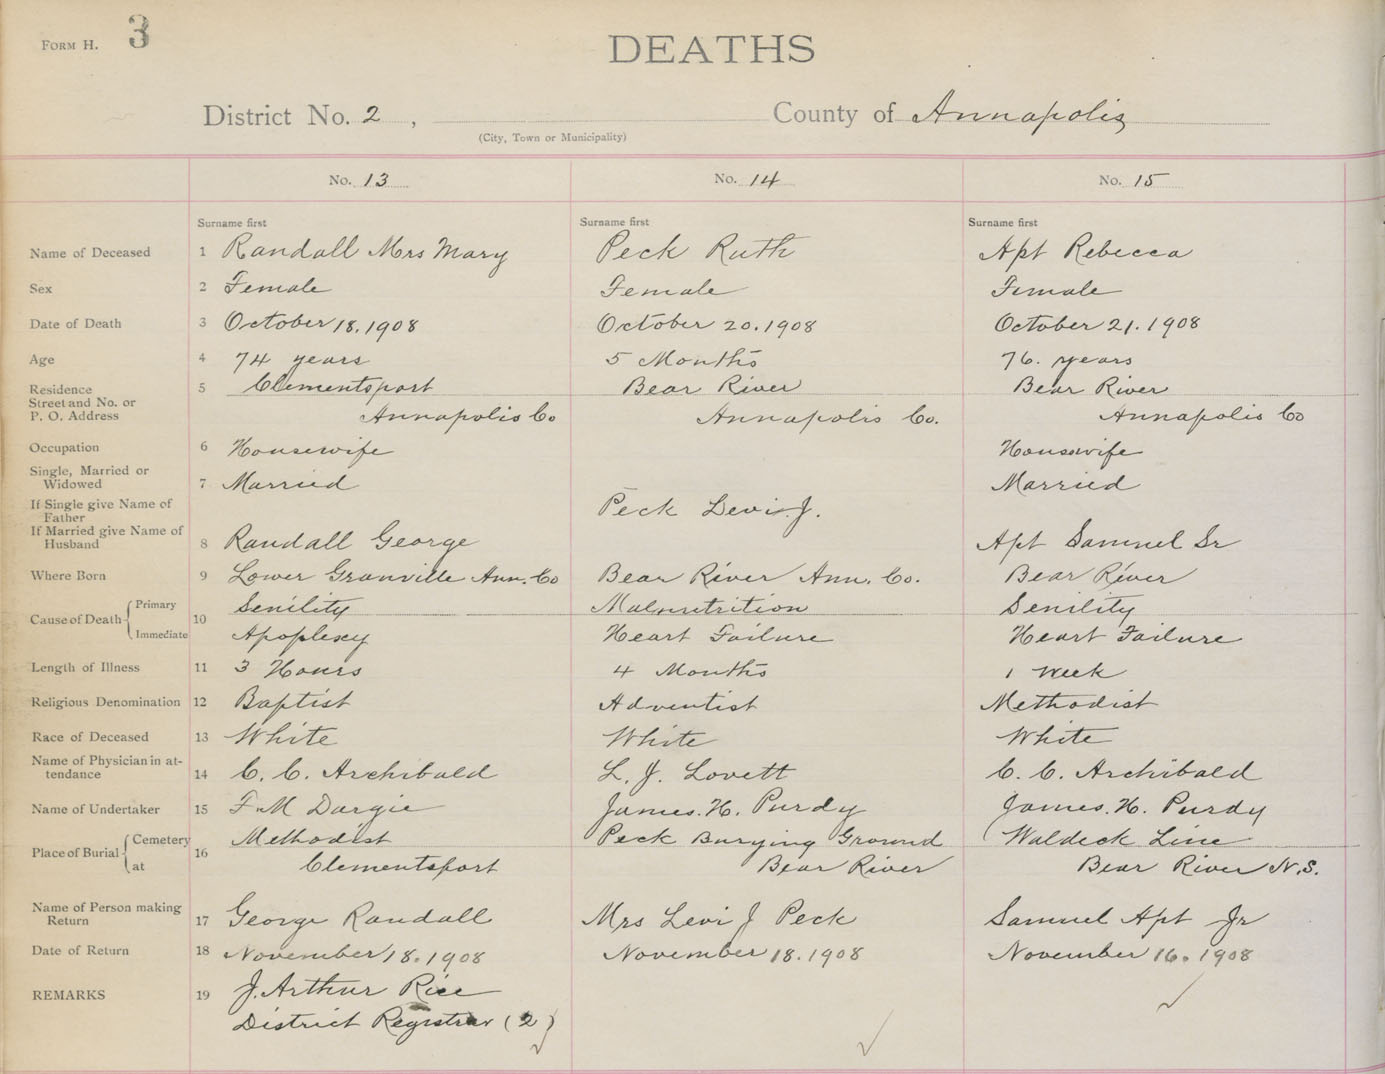 FORM H. 3
DEATHS
District No. 2 , County of Annapolis
(City, Town or Municipality)
No. 13 No. 14 No. 15
Surname first Surname first Surname first
Name of Deceased 1 Randall Mrs Mary Peck Ruth Apt Rebecca
Sex 2 Female Female Female
Date of Death 3 October 18. 1908 October 20. 1908 October 21. 1908
Age 4 74 years 5 Months 76. years
Residence 5 Clementsport Bear River Bear River
Street and No. or
P. O. Address Annapolis Co Annapolis Co. Annapolis Co
Occupation 6 Housewife Housewife
Single, Married or
Widowed 7 Married Married
If Single give Name of
Father Peck Levi. J.
If Married give Name of
Husband 8 Randall George Apt Samuel Sr
Where Born 9 Lower Granville Ann. Co Bear River Ann. Co. Bear River
Cause of Death Primary 10 Senility Malnutrition Senility
Immediate Apoplexy Heart Failure Heart Failure
Length of Illness 11 3 Hours 4 Months 1 Week
Religious Denomination 12 Baptist Adventist Methodist
Race of Deceased 13 White White White
Name of Physician in at-
tendance 14 C. C. Archibald L. J. Lovett C. C. Archibald
Name of Undertaker 15 F. M Dargie James. H. Purdy James. H. Purdy
Place of Burial Cemetery 16 Methodist Peck Burying Ground Waldeck Line
at Clementsport Bear River Bear River N.S.
Name of Person making
Return 17 George Randall Mrs Levi J Peck Samuel Apt Jr
Date of Return 18 November 18. 1908 November 18. 1908 November 16. 1908
REMARKS 19 J. Arthur Rice
District Registrar (2)